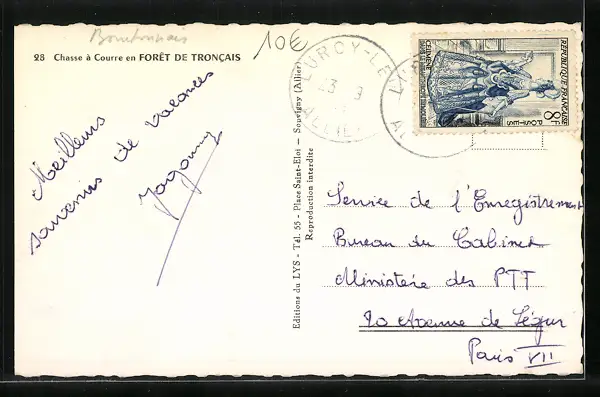 Bourbonnais
10€
28 Chasse à Courre en FORÊT DE TRONÇAIS
Meilleurs
souvenirs de vacances
Editions du LYS - Tél. 55 - Place Saint-Eloi - Souvigny (Allier)
Reproduction interdite
LURCY-LE
23 9
ALLIER
CELIMENE
REPUBLIQUE FRANÇAISE
POSTES
8F
Service de l'Enregistrement
Bureau du Cabinet
Ministère des PTT
20 Avenue de Ségur
Paris VII